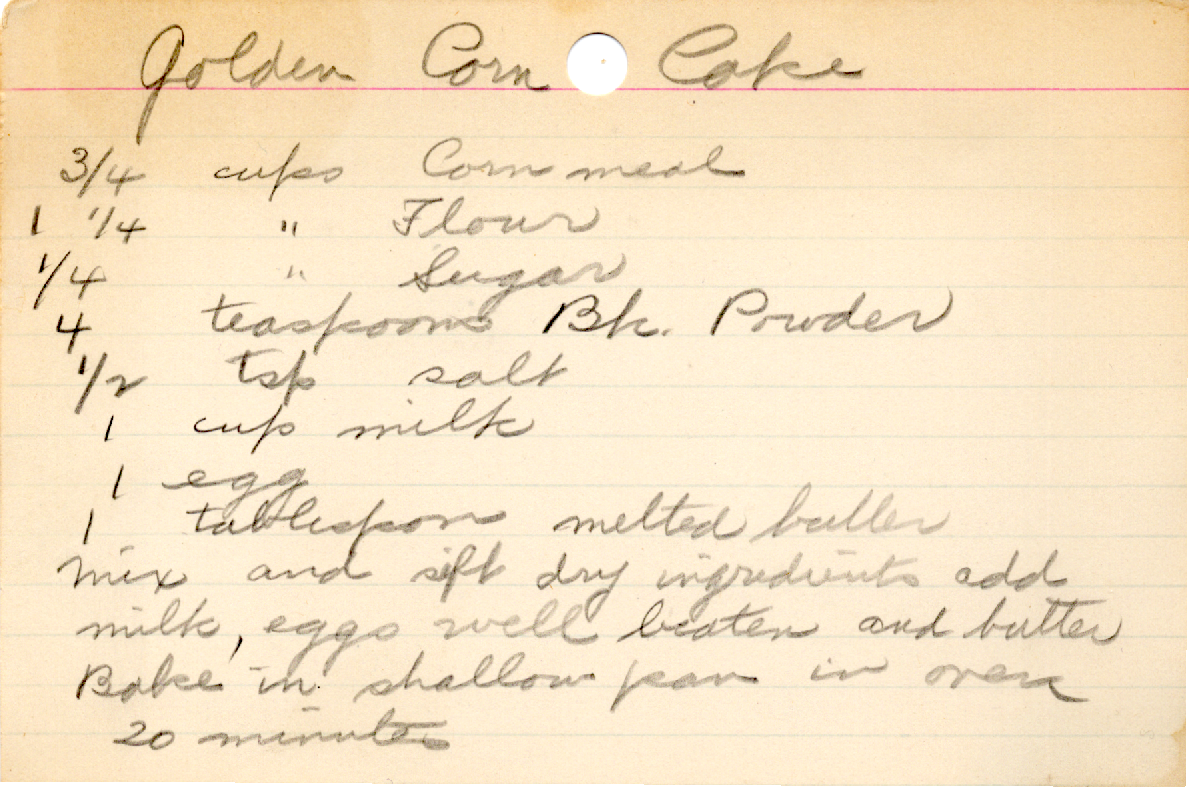 Golden Corn Cake
3/4 cups Corn meal
1 1/4 " Flour
1/4 " Sugar
4 teaspoons Bk. Powder
1/2 tsp salt
1 cup milk
1 egg
1 tablespoon melted butter
mix and sift dry ingredients add
milk, eggs well beaten and butter
Bake in shallow pan in oven
20 minutes